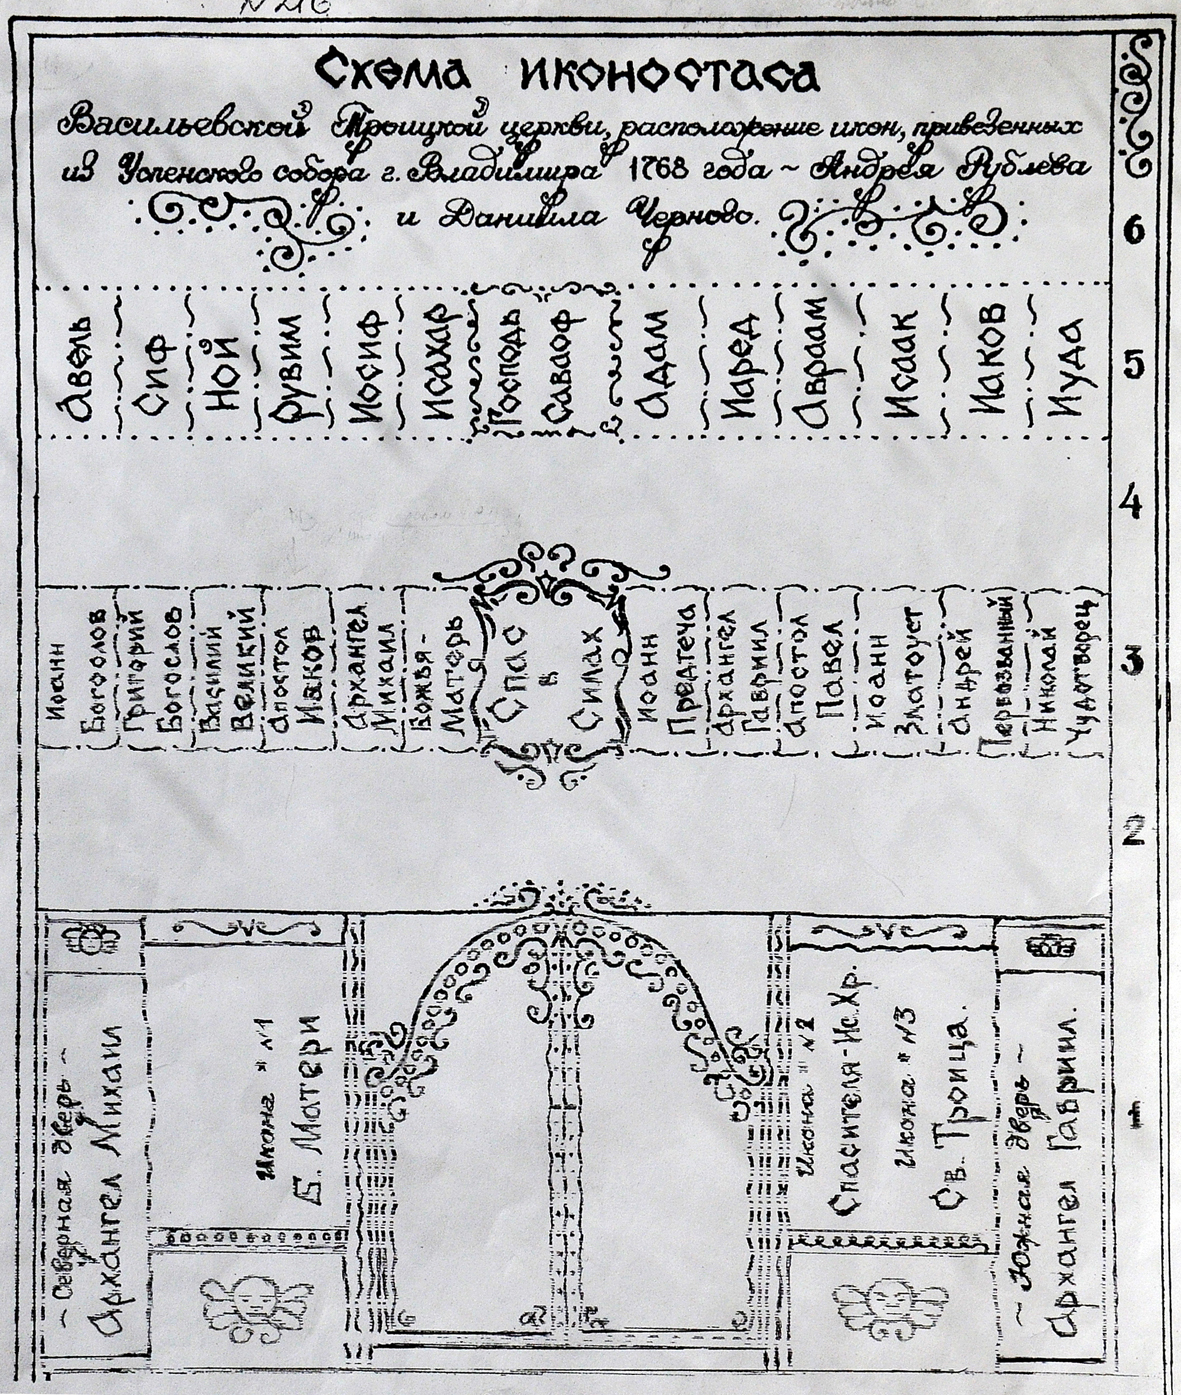 № 216
Схема иконостаса
Васильевской Троицкой церкви, расположение икон, привезенных
из Успенского собора г. Владимира 1768 года ~ Андрея Рублёва
и Даниила Черново.
6
Авель
Сиф
Ной
Рувим
Иосиф
Исахар
Господь
Саваоф
Адам
Иаред
Авраам
Исаак
Иаков
Иуда
5
4
Иоанн
Боголов
Григорий
Богослов
Василий
Великий
апостол
Иаков
Архангел
Михаил
Божья-
Матерь
Спас
в
Силах
Иоанн
Предтеча
Архангел
Гавриил
апостол
Павел
Иоанн
Златоуст
андрей
Первозванный
Николай
Чудотворец
3
2
~ Северная дверь ~
Архангел Михаил
Икона " №1
Б. Матери
Икона " №2
Спасителя-Ис. Хр.
Икона " №3
Св. Троица.
~ Южная дверь ~
Архангел Гавриил.
1